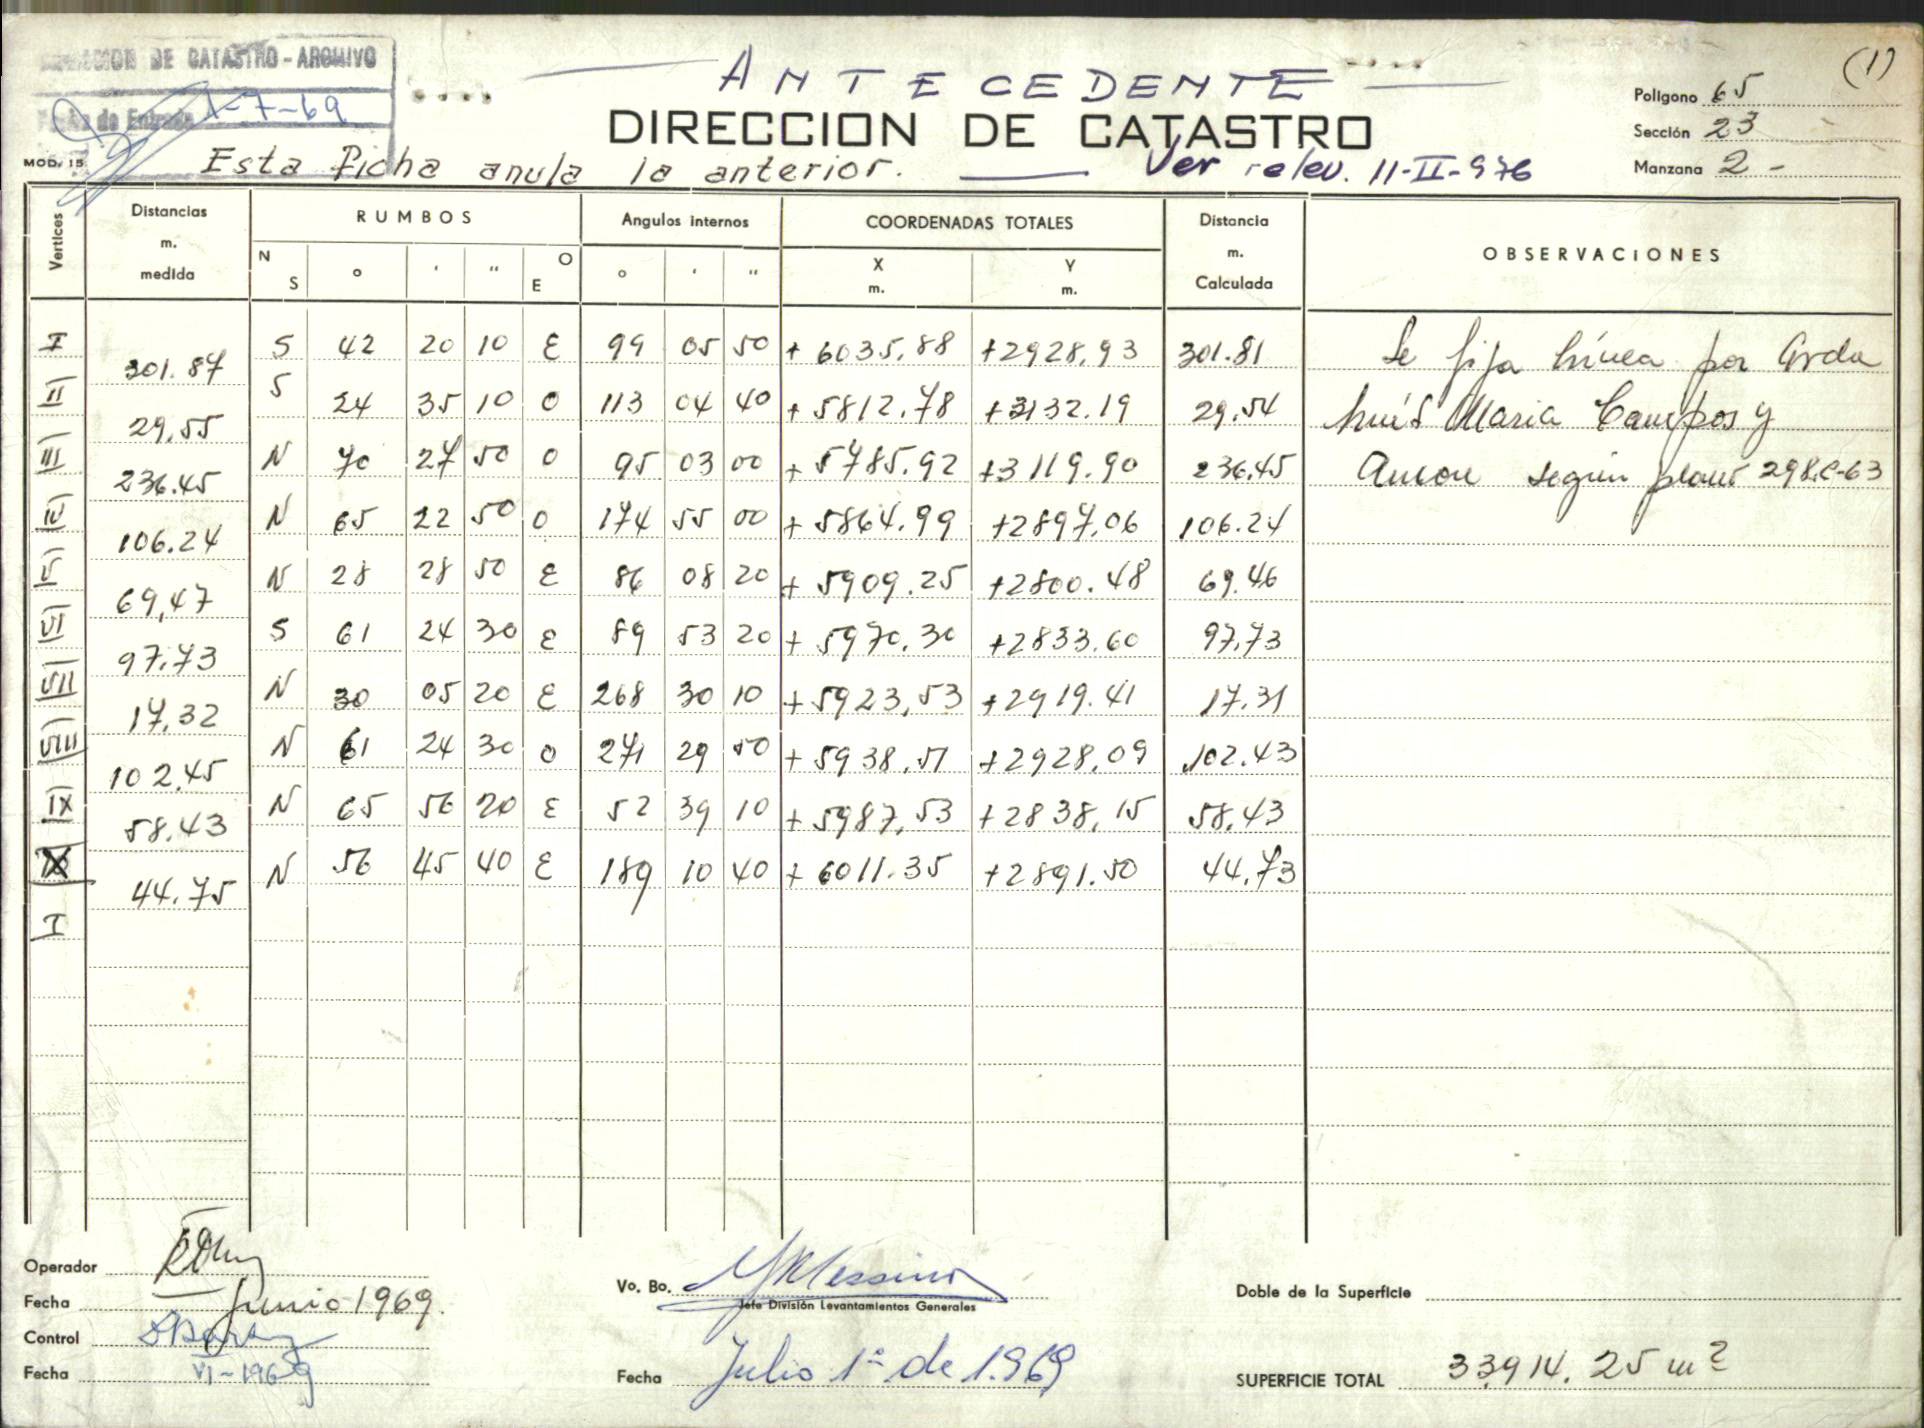 DIRECCION DE CATASTRO - ARCHIVO
Fecha de Entrada 1-7-69
ANTECEDENTE
(1)
DIRECCION DE CATASTRO
Poligono 65
Sección 23
Manzana 2 -
MOD. 15
Esta ficha anula la anterior. Ver relev. 11-II-976
Vertices Distancias m. medida RUMBOS Angulos internos COORDENADAS TOTALES Distancia m. Calculada OBSERVACIONES
N S ° ' " O E ° ' " X m. Y m.
I S 42 20 10 E 99 05 50 +6035.88 +2928.93 301.81 Se fija línea por Avda
301.87
II S 24 35 10 O 113 04 40 +5812.78 +3132.19 29.54 Luis Maria Campos y
29.55
III N 70 27 50 O 95 03 00 +5785.92 +3119.90 236.45 según plano 298-C-63
236.45
IV N 65 22 50 O 174 55 00 +5864.99 +2897.06 106.24
106.24
V N 28 28 50 E 86 08 20 +5909.25 +2800.48 69.46
69,47
VI S 61 24 30 E 89 53 20 +5970.30 +2833.60 97.73
97.73
VII N 30 05 20 E 268 30 10 +5923,53 +2919.41 17.31
17,32
VIII N 61 24 30 O 271 29 50 +5938,51 +2928,09 102.43
102.45
IX N 65 56 20 E 52 39 10 +5987,53 +2838,15 58.43
58.43
X N 56 45 40 E 189 10 40 +6011.35 +2891.50 44.73
44.75
I
Operador
Fecha Junio 1969.
Control
Fecha VI-1969
Vo. Bo.
Jefe División Levantamientos Generales
Fecha Julio 1º de 1.969
Doble de la Superficie
SUPERFICIE TOTAL 33.914.25 m2